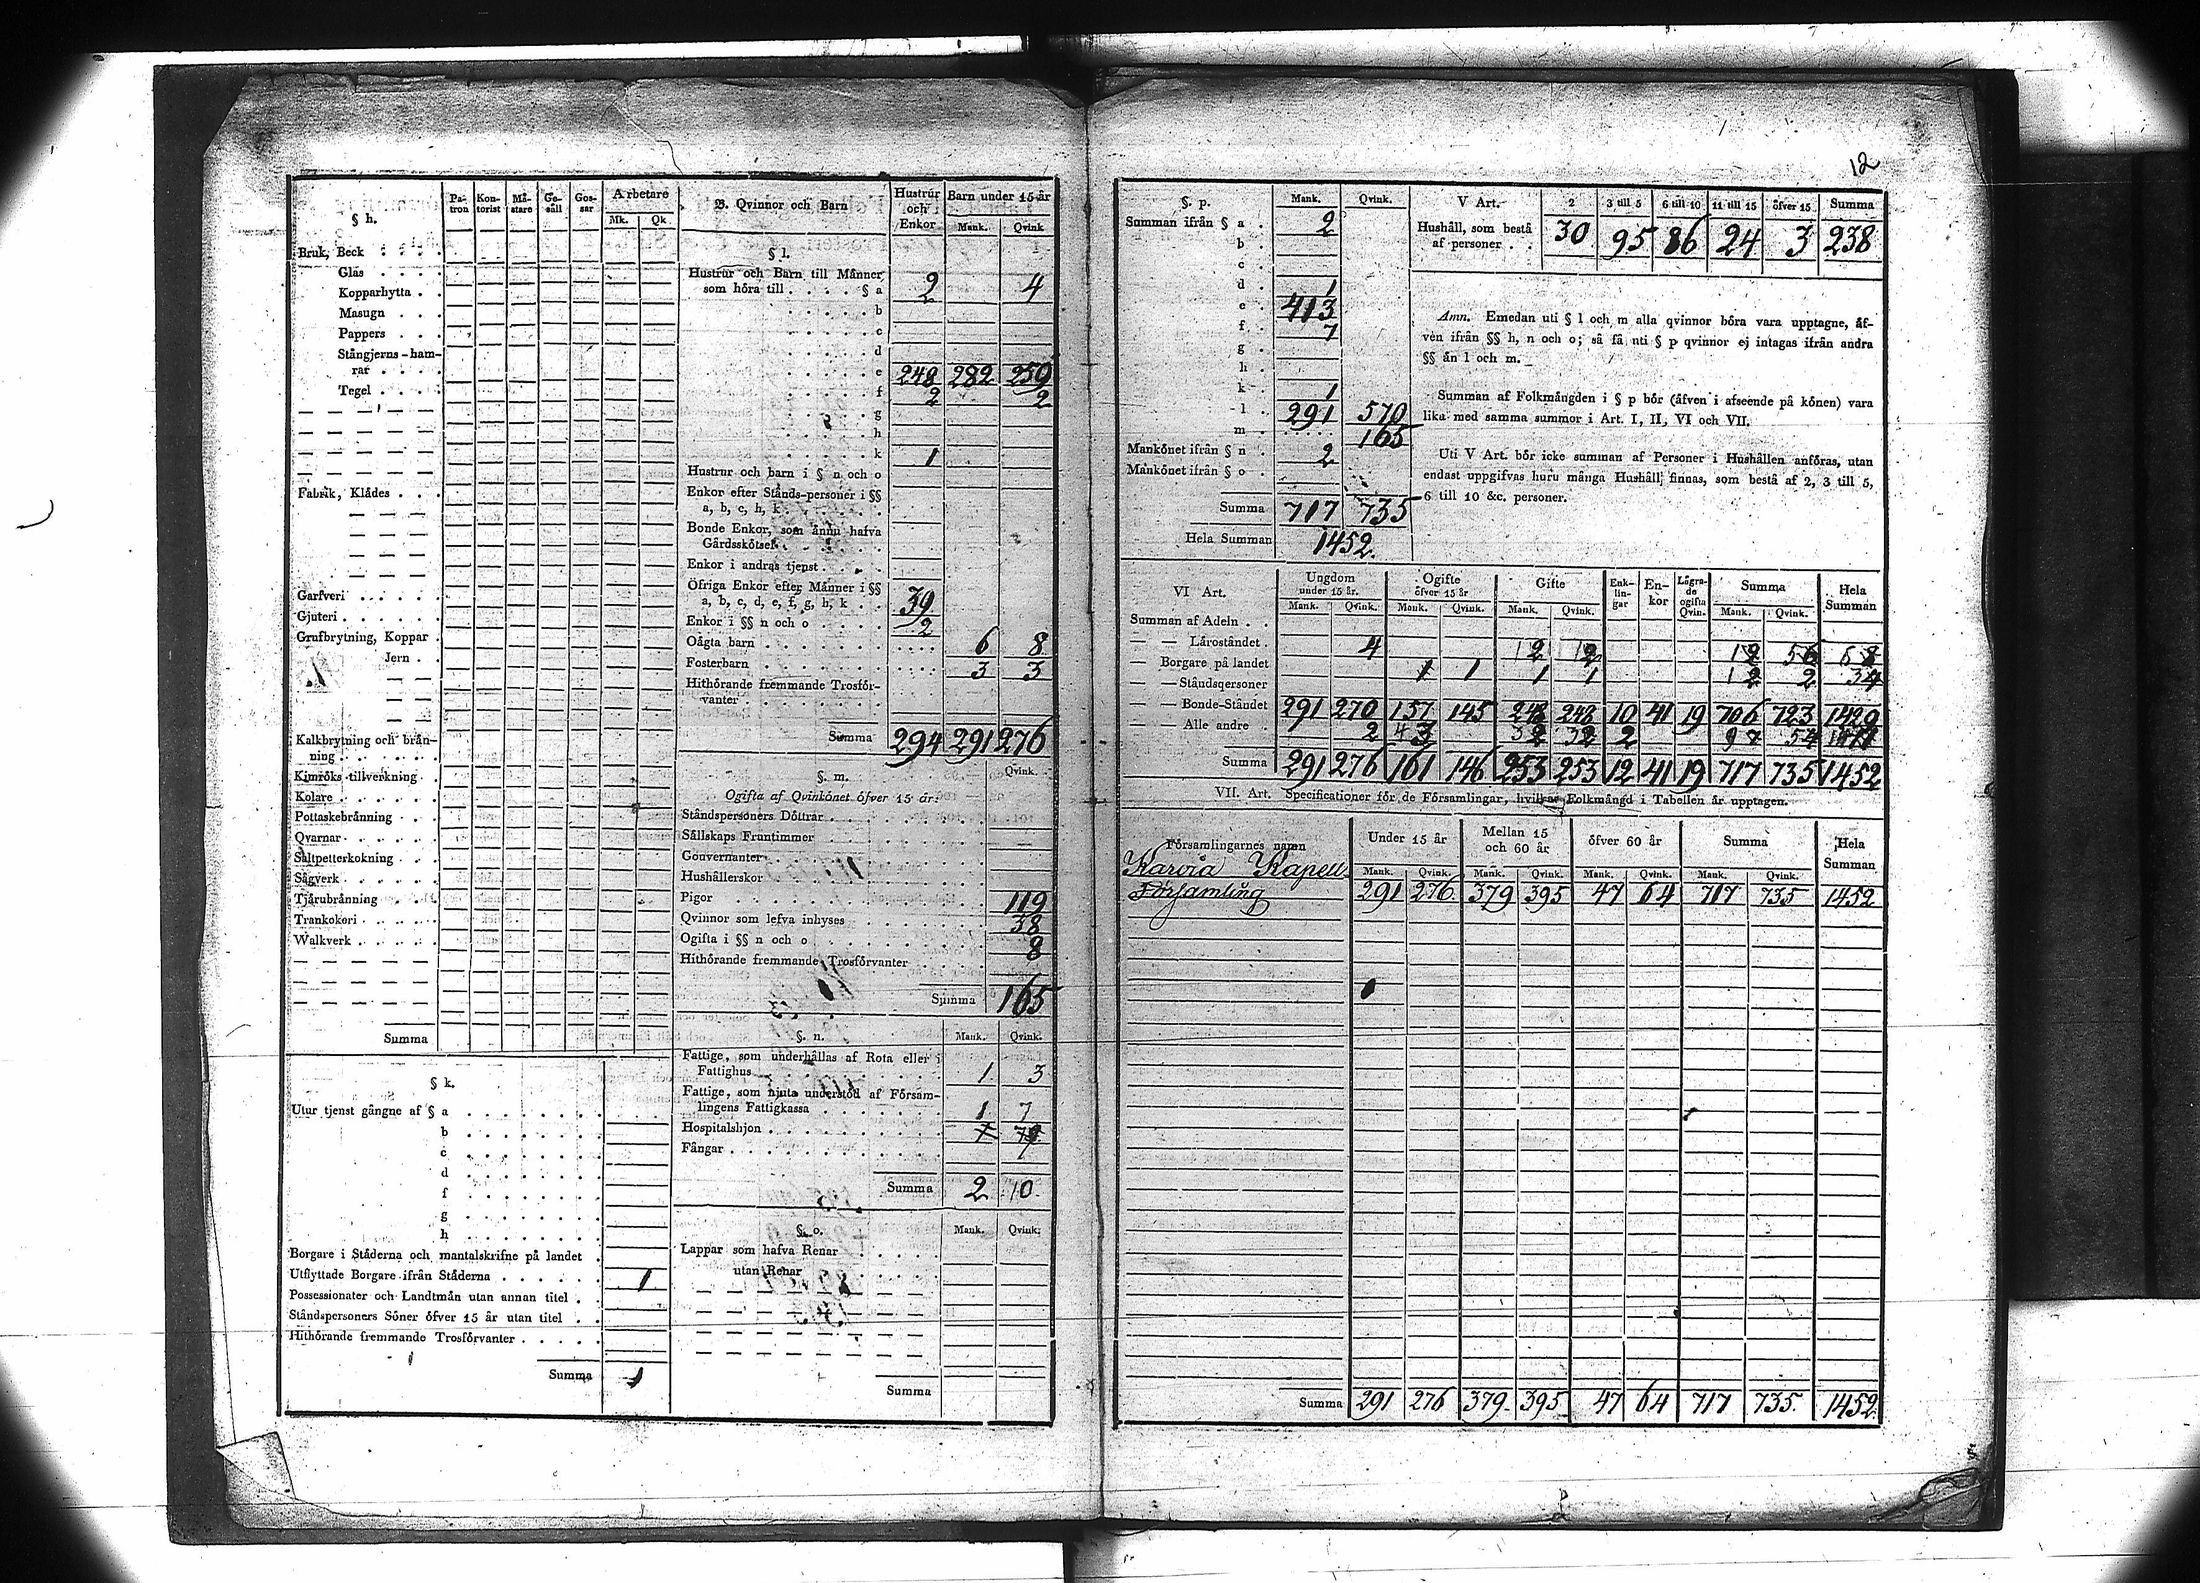 § h.
Pa-
tron
Kon-
torist
Må-
stare
Ge-
säll
Gos-
sar
Arbetare
Mk.
Qk
Bruk, Beck
Glas
Kopparhytta
Masugn
Pappers
Stångjerns-ham-
rar
Tegel
Fabrik, Klådes
Garfveri
Gjuteri
Grufbrytning, Koppar
Jern
Kalkbrytning och brån-
ning
Kimröks tillverkning
Kolare
Pottaskebrånning
Qvarnar
Saltpetterkokning
Sågverk
Tjårubrånning
Trankokeri
Walkverk
Summa
§ k.
Utur tjenst gångne af § a
b
c
d
f
g
h
Borgare i Ståderna och mantalskrifne på landet
Utflyttade Borgare ifrån Ståderna 1
Possessionater och Landtmån utan annan titel
Ståndspersoners Söner öfver 15 år utan titel
Hithörande fremmande Trosförvanter
Summa 1
B. Qvinnor och Barn
Hustrur
och
Enkor
Barn under 15 år
Mank.
Qvink
§ l.
Hustrur och Barn till Månner
som höra till § a 2 4
b
c
d
e 248 282 259
f 2 2
g
h
k 1
Hustrur och barn i § n och o
Enkor efter Stånds-personer i §§
a, b, c, h, k
Bonde Enkor, som ånnu hafva
Gårdsskötsel
Enkor i andras tjenst
Öfriga Enkor efter Månner i §§
a, b, c, d, e, f, g, h, k 39
Enkor i §§ n och o 2
Oågta barn 6 8
Fosterbarn 3 3
Hithörande fremmande Trosför-
vanter
Summa 294 291 276
§. m.
Qvink.
Ogifta af Qvinkönet öfver 15 år:
Ståndspersoners Döttrar
Sållskaps Fruntimmer
Gouvernanter
Hushållerskor
Pigor 119
Qvinnor som lefva inhyses 38
Ogifta i §§ n och o 8
Hithörande fremmande Trosförvanter
Summa 165
§. n.
Mank. Qvink.
Fattige, som underhållas af Rota eller i
Fattighus 1 3
Fattige, som njuta understöd af Försam-
lingens Fattigkassa 1 7
Hospitalshjon
Fångar
Summa 2 10
§. o.
Mank. Qvink.
Lappar som hafva Renar
utan Renar
Summa
12
§. p.
Mank. Qvink.
Summan ifrån § a 2
b
c
d 1
e 413
f 7
g
h
k 1
l 291 570
m 165
Mankönet ifrån § n 2
Mankönet ifrån § o
Summa 717 735
Hela Summan 1452.
V Art. 2 3 till 5 6 till 10 11 till 15 öfver 15 Summa
Hushåll, som bestå
af personer 30 95 86 24 3 238
Anm. Emedan uti § l och m alla qvinnor böra vara upptagne, åf-
ven ifrån §§ h, n och o; så få uti § p qvinnor ej intagas ifrån andra
§§ ån l och m.
Summan af Folkmångden i § p bör (åfven i afseende på könen) vara
lika med samma summor i Art. I, II, VI och VII.
Uti V Art. bör icke summan af Personer i Hushållen anföras, utan
endast uppgifvas huru många Hushåll, finnas, som bestå af 2, 3 till 5,
6 till 10 &c. personer.
VI Art.
Ungdom
under 15 år.
Ogifte
öfver 15 år
Gifte
Enk-
lin-
gar
En-
kor
Lågra-
de
ogifta
Qvin.
Summa
Hela
Summan
Mank. Qvink. Mank. Qvink. Mank. Qvink. Mank. Qvink.
Summan af Adeln
— — Låroståndet 4
— Borgare på landet
— — Ståndspersoner
— — Bonde-Ståndet 291 270 157 145 248 248 10 41 19 706 723 1429
— — Alle andre
Summa 291 276 161 146 253 253 12 41 19 717 735 1452
VII. Art. Specificationer för de Församlingar, hvilkas Folkmångd i Tabellen år upptagen.
Församlingarnes namn
Under 15 år
Mellan 15
och 60 år
öfver 60 år
Summa
Hela
Summan
Mank. Qvink. Mank. Qvink. Mank. Qvink. Mank. Qvink.
Karvia Kapell
Församling 291 276. 379 395 47 64 717 735 1452
Summa 291 276 379. 395 47 64 717 735. 1452.